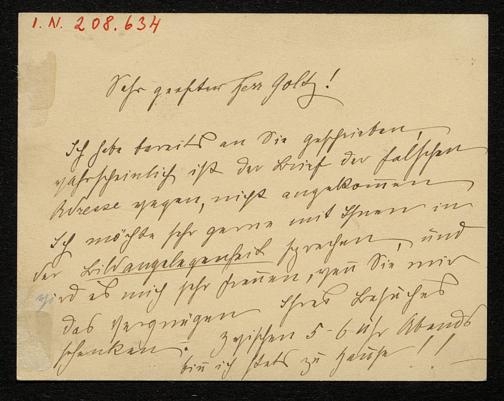 I. N. 208.634
Sehr geehrter Herr Goltz!
Ich habe bereits an Sie geschrieben,
wahrscheinlich ist der Brief der falschen
Adresse wegen, nicht angekommen
Ich möchte sehr gerne mit Ihnen in
der Bildangelegenheit sprechen, und
wird es mich sehr freuen, wenn Sie mir
das Vergnügen Ihres Besuches
schenken. Zwischen 5-6 Uhr Abends
bin ich stets zu Hause!!